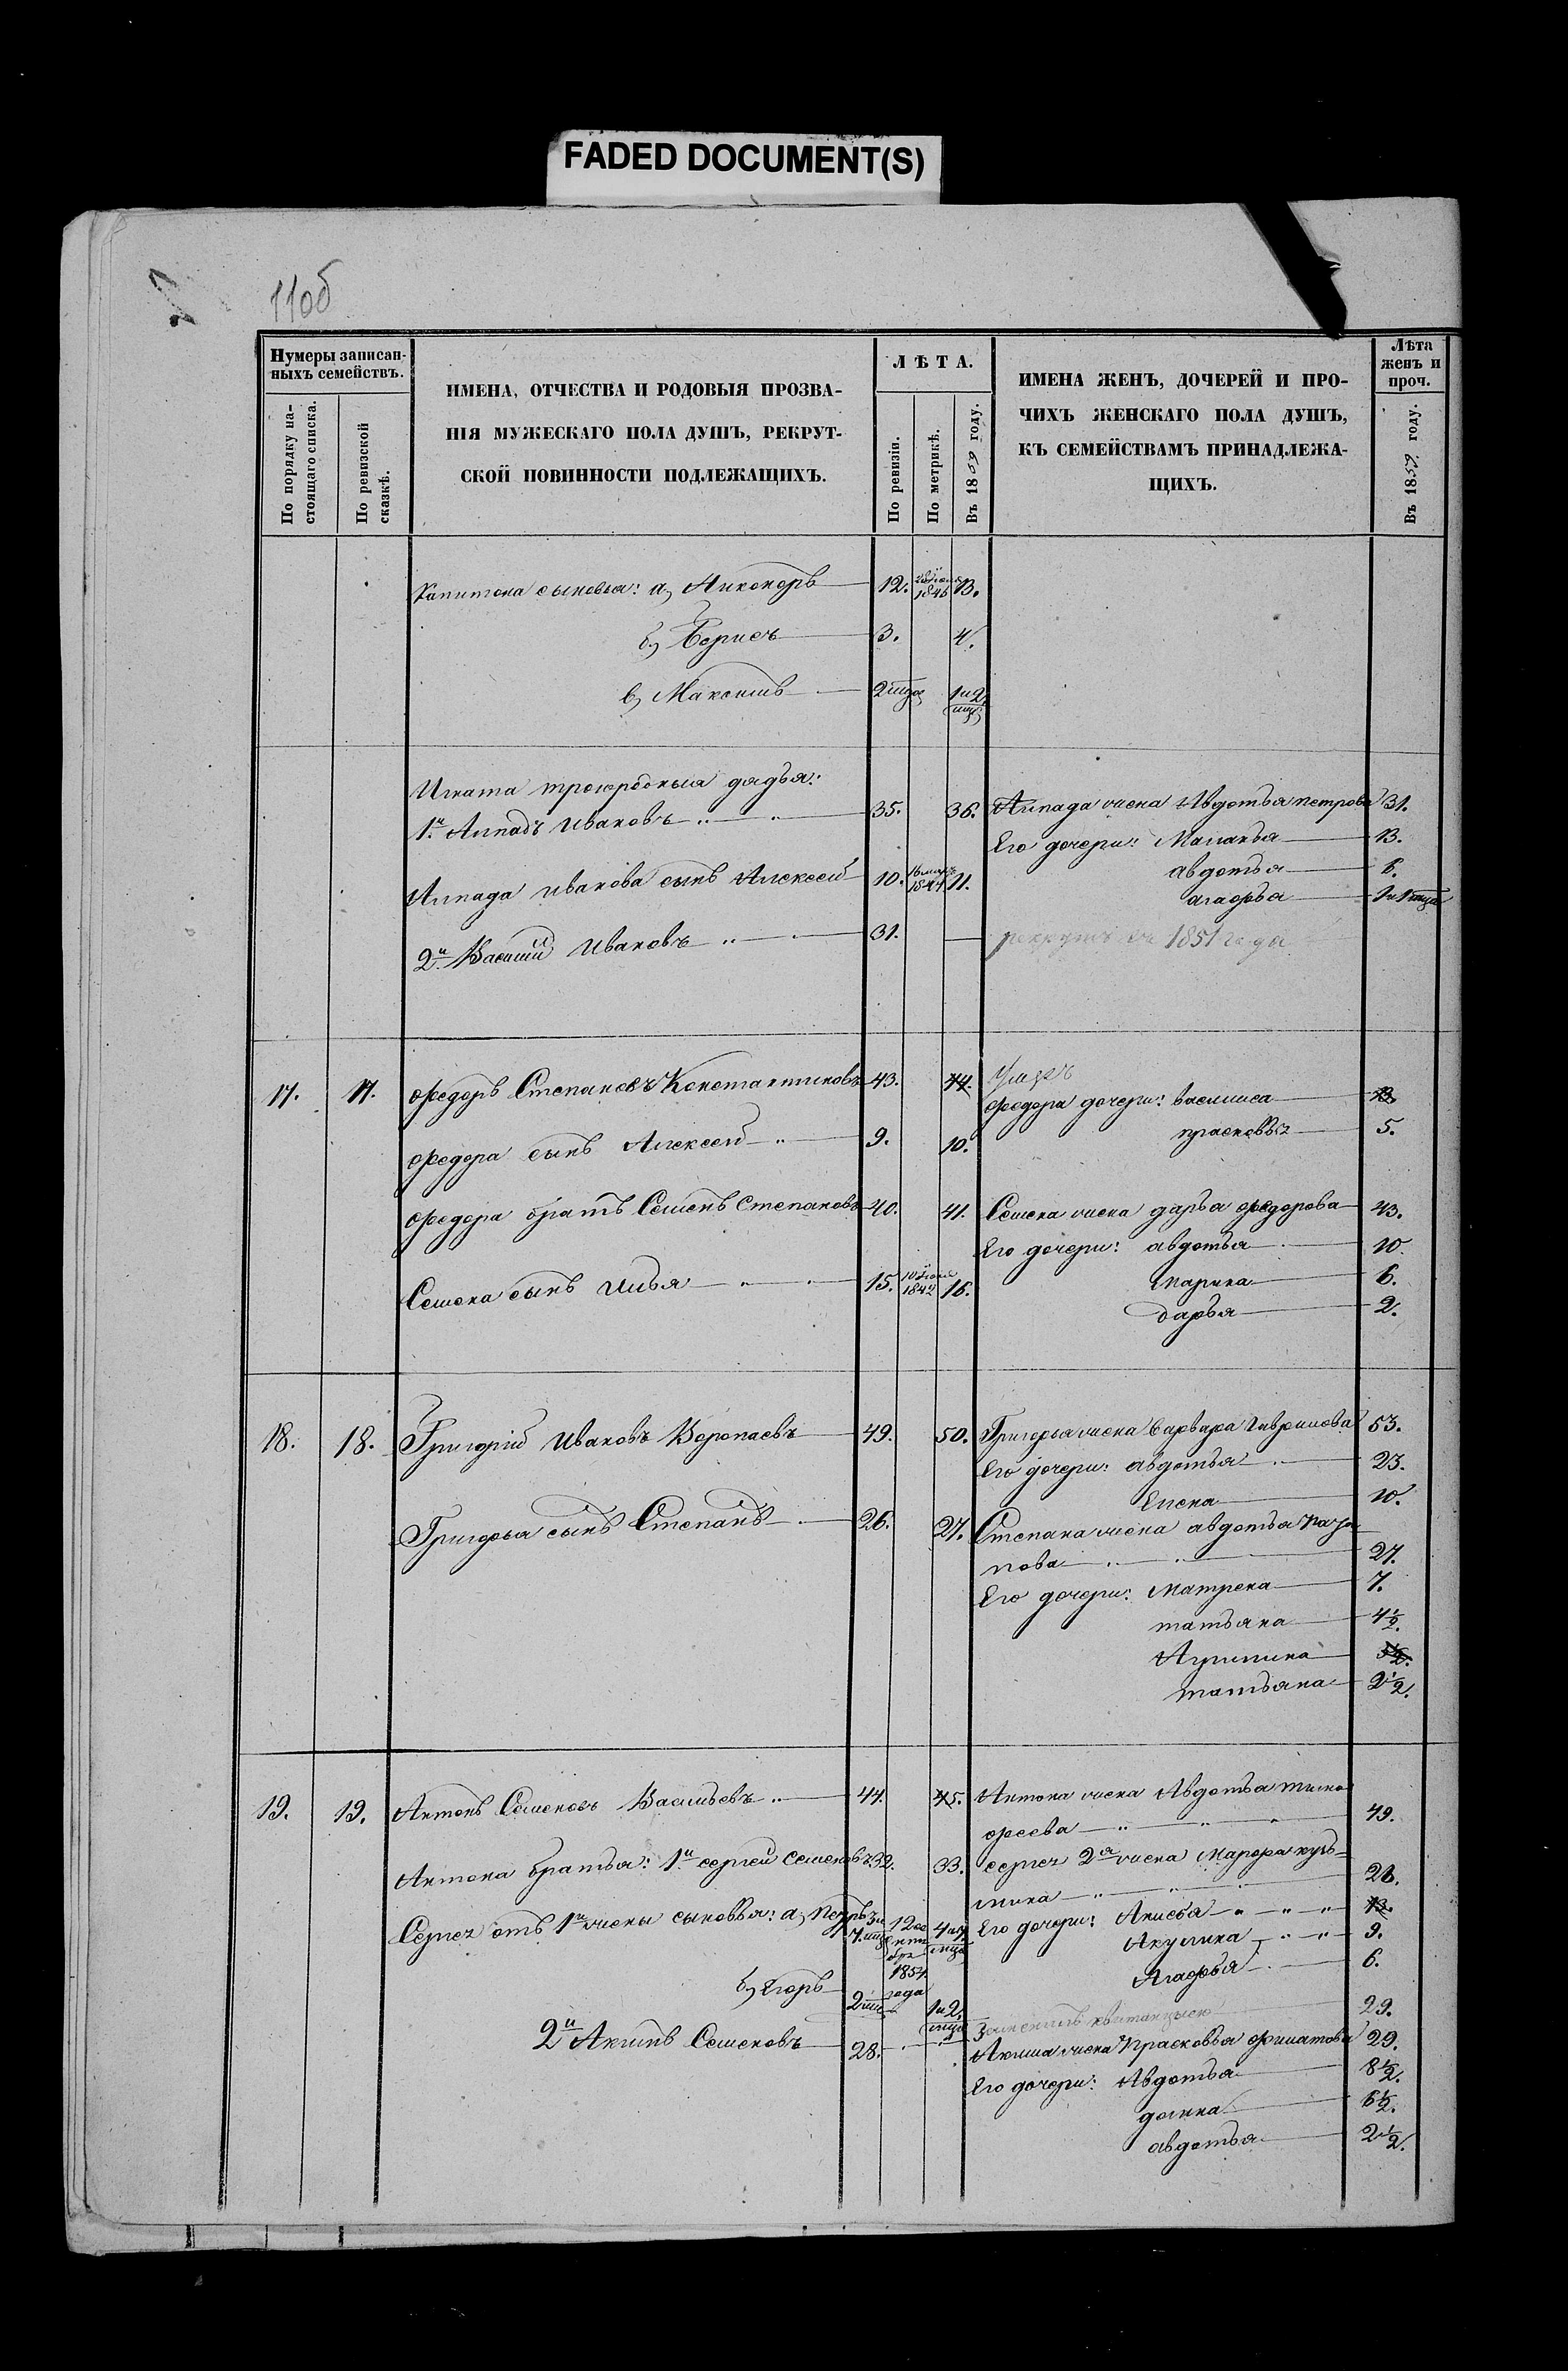 FADED DOCUMENT(S)
110б
Нумеры записан-
ныхъ семействъ.
По порядку на-
стоящаго списка.
По ревизской
сказкѣ.
ИМЕНА, ОТЧЕСТВА И РОДОВЫЯ ПРОЗВА-
НІЯ МУЖЕСКАГО ПОЛА ДУШЪ, РЕКРУТ-
СКОЙ ПОВИННОСТИ ПОДЛЕЖАЩИХЪ.
ЛѢТА.
По ревизіи.
По метрикѣ.
Въ 1859 году.
ИМЕНА ЖЕНЪ, ДОЧЕРЕЙ И ПРО-
ЧИХЪ ЖЕНСКАГО ПОЛА ДУШЪ,
КЪ СЕМЕЙСТВАМЪ ПРИНАДЛЕЖА-
ЩИХЪ.
Лѣта
женъ и
проч.
Въ 1859 году.
Капитона сыновья: а, Никоноръ 12. 1846 13.
б, Борисъ 3. 4.
в, Максимъ 2 мцa 1 и 2 мца
Игната троюродныя дядья:
1й Аппадъ Ивановъ 35. 36. Аппада жена Авдотья петрова 31.
Его дочери: Маланья 13.
Аппада иванова сынъ Алексей 10. 16 мар 1847 11. авдотья 6.
агафья 1 и 1 мца
2й Василий Ивановъ 31. — рекрутъ съ 1851 года
17. 17. Федоръ Степановъ Константиновъ 43. 44. умеръ
Федора дочери: василиса 13.
Федора сынъ Алексей 9. 10. прасковья 5.
Федора братъ Семенъ Степановъ 40. 41. Семена жена дарья федорова 43.
Его дочери: авдотья 10.
Семена сынъ Илья 15. 1842 16. Марина 6.
дарья 2.
18. 18. Григорій Ивановъ Воропаевъ 49. 50. Григорья жена варвара гаврилова 53.
Его дочери: авдотья 23.
Елена 10.
Григорья сынъ Степанъ 26. 27. Степана жена авдотья
пова 27.
Его дочери: Матрена 7.
татьяна 4½.
Агрипина
татьяна 2½.
19. 19. Антонъ Семеновъ Васильевъ 44. 45. Антона жена Авдотья тимо-
феева 49.
Антона братья: 1й сергей семеновъ 32. 33. сергея 2я жена Марфа кузь-
мина 28.
Сергея отъ 1й жены сыновья: а, петръ 3 и 7 мц 12 сентября 1854 года 4 и 7 мца Его дочери: Анисья 13.
Акулина 9.
Агафья 6.
б, Егоръ 2 мц 1 и 2 мца
2й Акимъ Семеновъ 28. — заменилъ квитанцыею 29.
Акима жена Прасковья филатова 29.
Его дочери: Авдотья 8½.
домна 6½.
авдотья 2½.